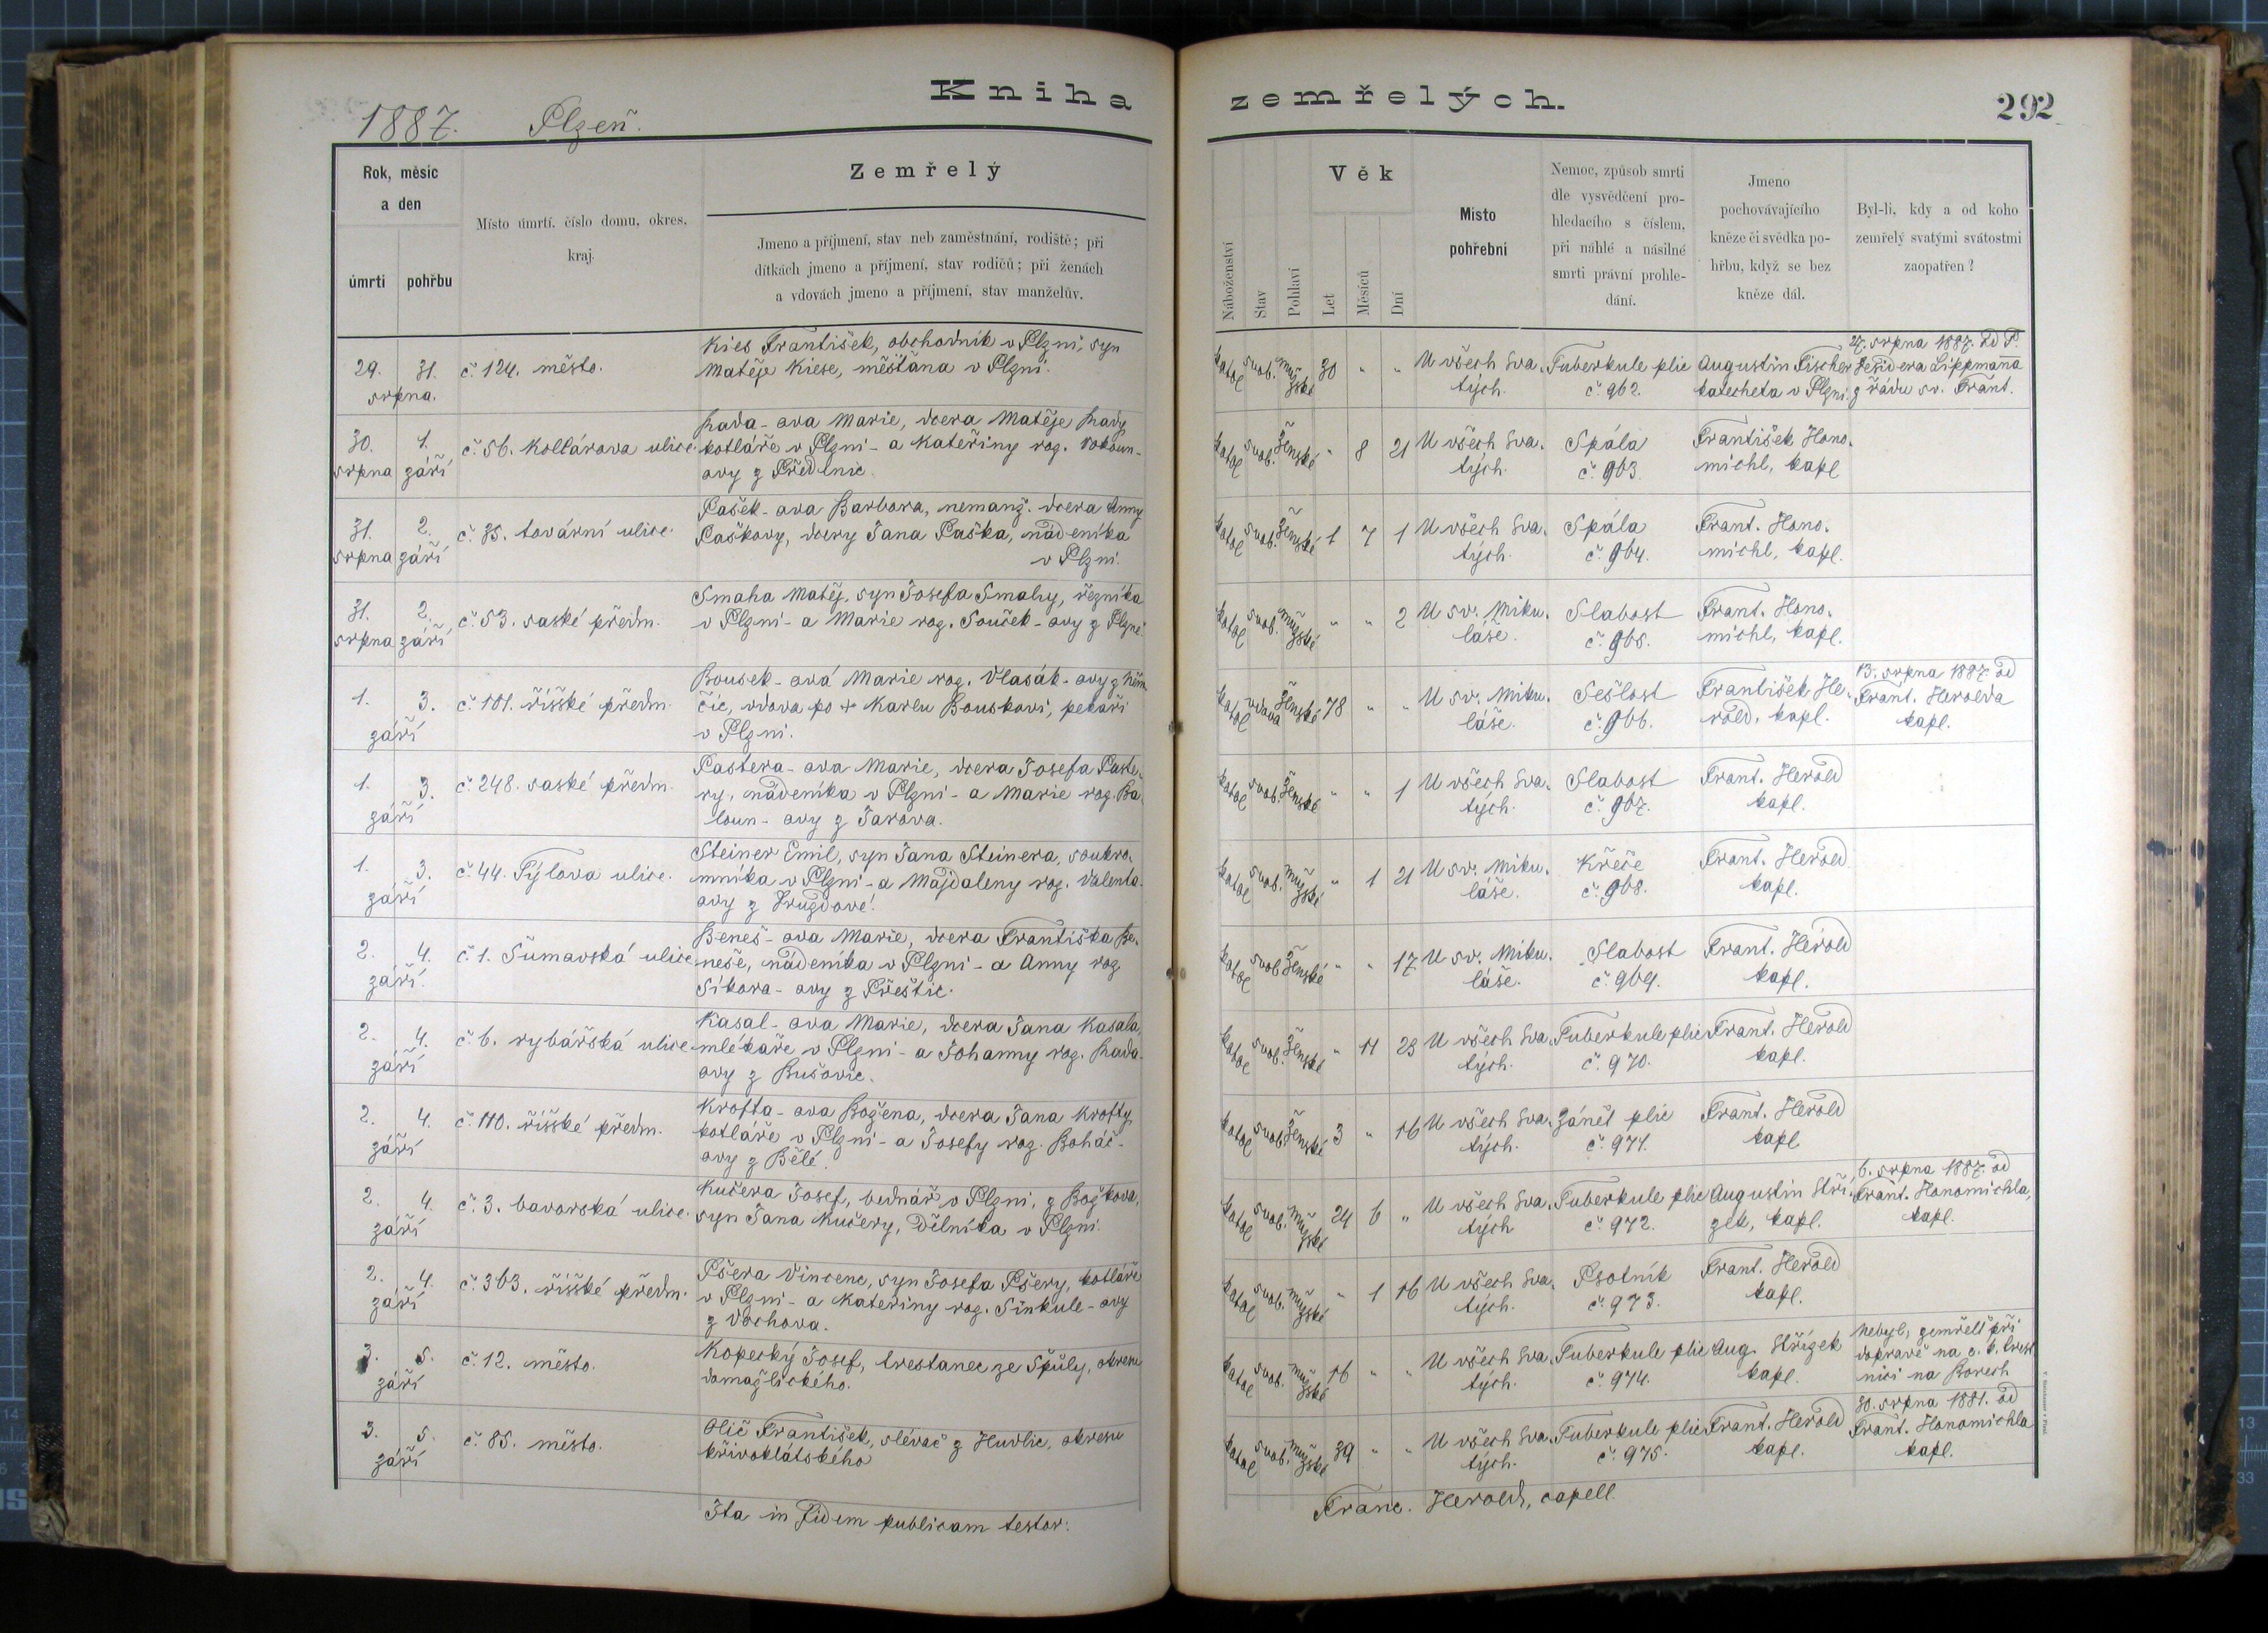 Kniha zemřelých.
292
1887. Plzeň.
Rok, měsíc
a den
úmrtí
pohřbu
Místo úmrtí, číslo domu, okres,
kraj.
Zemřelý
Jmeno a příjmení, stav neb zaměstnání, rodiště; při
dítkách jmeno a příjmení, stav rodičů; při ženách
a vdovách jmeno a příjmení, stav manželův.
Náboženství
Stav
Pohlaví
Věk
Let
Měsíců
Dní
Místo
pohřební
Nemoc, způsob smrti
dle vysvědčení pro-
hledacího s číslem,
při náhlé a násilné
smrti právní prohle-
dání.
Jmeno
pochovávajícího
kněze či svědka po-
hřbu, když se bez
kněze dál.
Byl-li, kdy a od koho
zemřelý svatými svátostmi
zaopatřen?
29. 31.
srpna.
č. 124. město.
Kies František, obchodník v Plzni, syn
Matěje Kiese, měšťana v Plzni.
katol svob. mužské 30 " "
U všech Sva.
tých.
Tuberkule plic
č. 962.
Augustin Fischer
katecheta v Plzni.
27. srpna 1887. od P.
Desidera Lippmanna
z řádu sv. Frant.
30. 1.
srpna září
č. 56. Kollárova ulice.
Hada-ova Marie, dcera Matěje Hady
kotláře v Plzni - a Kateřiny roz. Vokoun-
ovy z Předenic.
katol svob. ženské " 8 21
U všech Sva.
tých.
Spála
č. 963.
František Hono.
michl, kapl
31. 2.
srpna září
č. 35. tovární ulice.
Pašek-ova Barbora, nemanž. dcera Anny
Paškovy, dcery Jana Paška, nádeníka
v Plzni.
katol svob. ženské 1 7 1
U všech Sva.
tých.
Spála
č. 964.
Frant. Hono.
michl, kapl.
31. 2.
srpna září
č. 53. saské předm.
Smaha Matěj, syn Josefa Smahy, řezníka
v Plzni - a Marie roz. Souček-ovy z Plzně.
katol svob. mužské " " 2
U sv. Miku.
láše.
Slabost
č. 965.
Frant. Hono.
michl, kapl.
1. 3.
září
č. 101. říšské předm.
Bousek-ová Marie roz. Vlasák-ovy z Něm.
čic, vdova po + Karlu Bouskovi, pekaři
v Plzni.
katol vdova ženské 78 " "
U sv. Miku.
láše.
Sešlost
č. 966.
František He.
rold, kapl.
13. srpna 1887. od
Frant. Herolda
kapl.
1. 3.
září
č. 248. saské předm.
Pastera-ova Marie, dcera Josefa Paste.
ry, nádeníka v Plzni - a Marie roz. Ba.
loun-ovy z Jarova.
katol svob. ženské " " 1
U všech Sva.
tých.
Slabost
č. 967.
Frant. Herold
kapl.
1. 3.
září
č. 44. Týlova ulice.
Steiner Emil, syn Jana Steinera, soukro.
mníka v Plzni - a Majdaleny roz. Valenta-
ovy z
katol svob. mužské " 1 21
U sv. Miku.
láše.
Křeče
č. 968.
Frant. Herold.
kapl.
2. 4.
září.
č. 1. Šumavská ulice
Beneš-ova Marie, dcera Františka Be.
neše, nádeníka v Plzni - a Anny roz
Sikora-ovy z Přeštic.
katol svob ženské " " 17
U sv. Miku.
láše.
Slabost
č. 969.
Frant. Herold
kapl.
2. 4.
září
č. 6. rybářská ulice
Kasal-ova Marie, dcera Jana Kasala,
mlékaře v Plzni - a Johanny roz. Hada-
ovy z Bušovic.
katol svob. ženské " 11 23
U všech Sva.
tých.
Tuberkule plic
č. 970.
Frant. Herold
kapl.
2. 4.
září
č. 110. říšské předm.
Krofta-ova Božena, dcera Jana Krofty,
kotláře v Plzni - a Josefy roz. Boháč-
ovy z Bělé.
katol svob. ženské 3 " 16
U všech Sva.
tých.
Zánět plic
č. 971.
Frant. Herold
kapl
2. 4.
září
č. 3. bavorská ulice.
Kučera Josef, bednář v Plzni, z Božkova,
syn Jana Kučery, dělníka, v Plzni.
katol svob. mužské 24 6 "
U všech Sva.
tých
Tuberkule plic
č. 972.
Augustin Stří.
zek, kapl.
6. srpna 1887. od
Frant. Honomichla,
kapl.
2. 4.
září
č. 363. říšské předm.
Pšera Vincenc, syn Josefa Pšery, kotláře
v Plzni - a Kateřiny roz. Sinkule-ovy
z Vochova.
katol svob. mužské " 1 16
U všech Sva.
tých.
Psotník
č. 973.
Frant. Herold
kapl.
3. 5.
září
č. 12. město.
Kopecký Josef, trestanec ze Spůly, okresu
domažlického.
katol svob. mužské 16 " "
U všech Sva.
tých.
Tuberkule plic
č. 974.
Aug. Střízek
kapl.
Nebyl, zemřelť při
dopravě na c. k. trest
nici na Borech
3. 5.
září
č. 85. město.
Olič František, slévač z Hudlic, okresu
křivoklátského
katol svob. mužské 39 " "
U všech Sva.
tých.
Tuberkule plic
č. 975.
Frant. Herold
kapl.
30. srpna 1881. od
Frant. Honomichla
kapl.
Ita in fidem publicam testor:
Franc. Herold, capell.